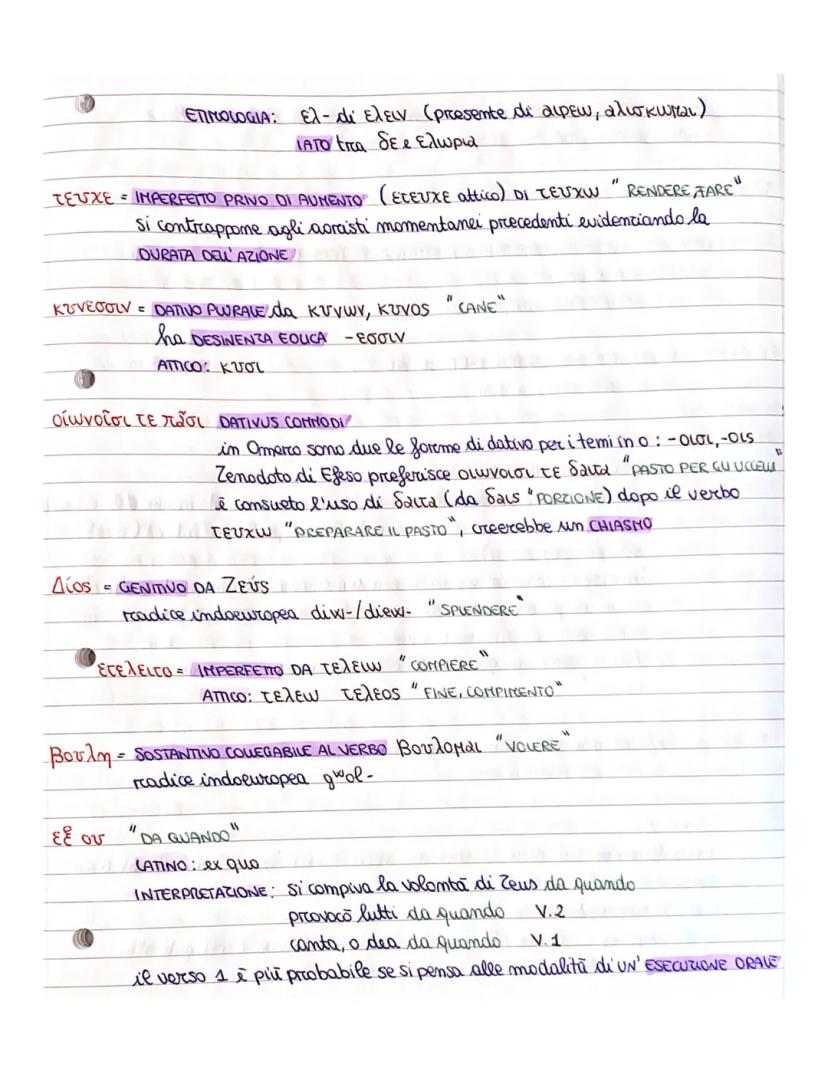 ETIMOLOGIA: ελ- di ελειν (presente di αιρεω, αλισκωμαι)
IATO tra δε e ελωρια
τευχε = IMPERFETTO PRIVO DI AUMENTO (ετευχε attico) DI τευχω "RENDERE, FARE"
si contrappone agli aoristi momentanei precedenti evidenziando la
DURATA DELL'AZIONE
κυνεσσιν = DATIVO PLURALE da κυνων, κυνος "CANE"
ha DESINENZA EOLICA -εσσιν
ATTICO: κυσι
οἰωνοῖσι τε πᾶσι DATIVUS COMMODI
in Omero sono due le forme di dativo per i temi in o: -οισι, -οις
Zenodoto di Efeso preferisce οιωνοισι τε δαιτα "PASTO PER GLI UCCELLI"
è consueto l'uso di δαιτα (da δαις "PORZIONE) dopo il verbo
τευχω "PREPARARE IL PASTO", creerebbe un CHIASMO
Δίος = GENITIVO DA Ζεύς
radice indoeuropea diw-/diew- "SPLENDERE"
ετελειτο = IMPERFETTO DA τελειω "COMPIERE"
ATTICO: τελεω τελεος "FINE, COMPIMENTO"
Βουλη = SOSTANTIVO COLLEGABILE AL VERBO Βουλομαι "VOLERE"
radice indoeuropea gʷol-
εξ ου "DA QUANDO"
LATINO: ex quo
INTERPRETAZIONE: si compiva la volontà di Zeus da quando
provocò lutti da quando V.2
canta, o dea da quando V.1
il verso 1 è più probabile se si pensa alle modalità di UN'ESECUZIONE ORALE